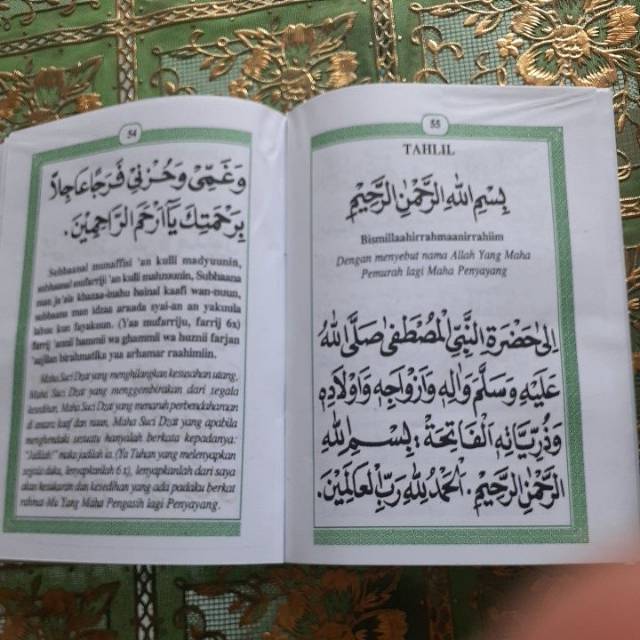 54
وَغَمِّىْ وَحُزْنِيْ فَرَجًا عَاجِلًا
بِرَحْمَتِكَ يَاأَرْحَمَ الرَّاحِمِيْنَ.
Subhaanal munaffisi 'an kulli madyuunin,
subhaanal mufarriji 'an kulli mahzuunin, Subhaana
man ja'ala khazaa-inahu bainal kaafi wan-nuun,
subhaana man idzaa araada syai-an an yakuula
lahuu kun fayakuun. (Yaa mufarriju, farrij 6x)
farrij 'annii hammii wa ghammii wa huznii farjan
'aajilan birahmatika yaa arhamar raahimiin.
Maha Suci Dzat yang menghilangkan kesusahan utang,
Maha Suci Dzat yang menggembirakan dari segala
kesedihan, Maha Suci Dzat yang menaruh perbendaharaan
di antara kaaf dan nuun, Maha Suci Dzat yang apabila
menghendaki sesuatu hanyalah berkata kepadanya:
"Jadilah" maka jadilah ia. (Ya Tuhan yang melenyapkan
segala duka, lenyapkanlah 6 x), lenyapkanlah dari saya
akan kesukaran dan kesedihan yang ada padaku berkat
rahma-Mu Yang Maha Pengasih lagi Penyayang.
55
TAHLIL
بِسْمِ اللهِ الرَّحْمٰنِ الرَّحِيْمِ
Bismillaahirrahmaanirrahiim
Dengan menyebut nama Allah Yang Maha
Pemurah lagi Maha Penyayang
اِلَى حَضْرَةِ النَّبِيِّ الْمُصْطَفٰى صَلَّى اللهُ
عَلَيْهِ وَسَلَّمَ وَاٰلِهِ وَاَزْوَاجِهِ وَاَوْلَادِهِ
وَذُرِّيَّاتِهِ الْفَاتِحَةْ ؛ بِسْمِ اللهِ
الرَّحْمٰنِ الرَّحِيْمِ. اَلْحَمْدُ لِلّٰهِ رَبِّ الْعَالَمِيْنَ.